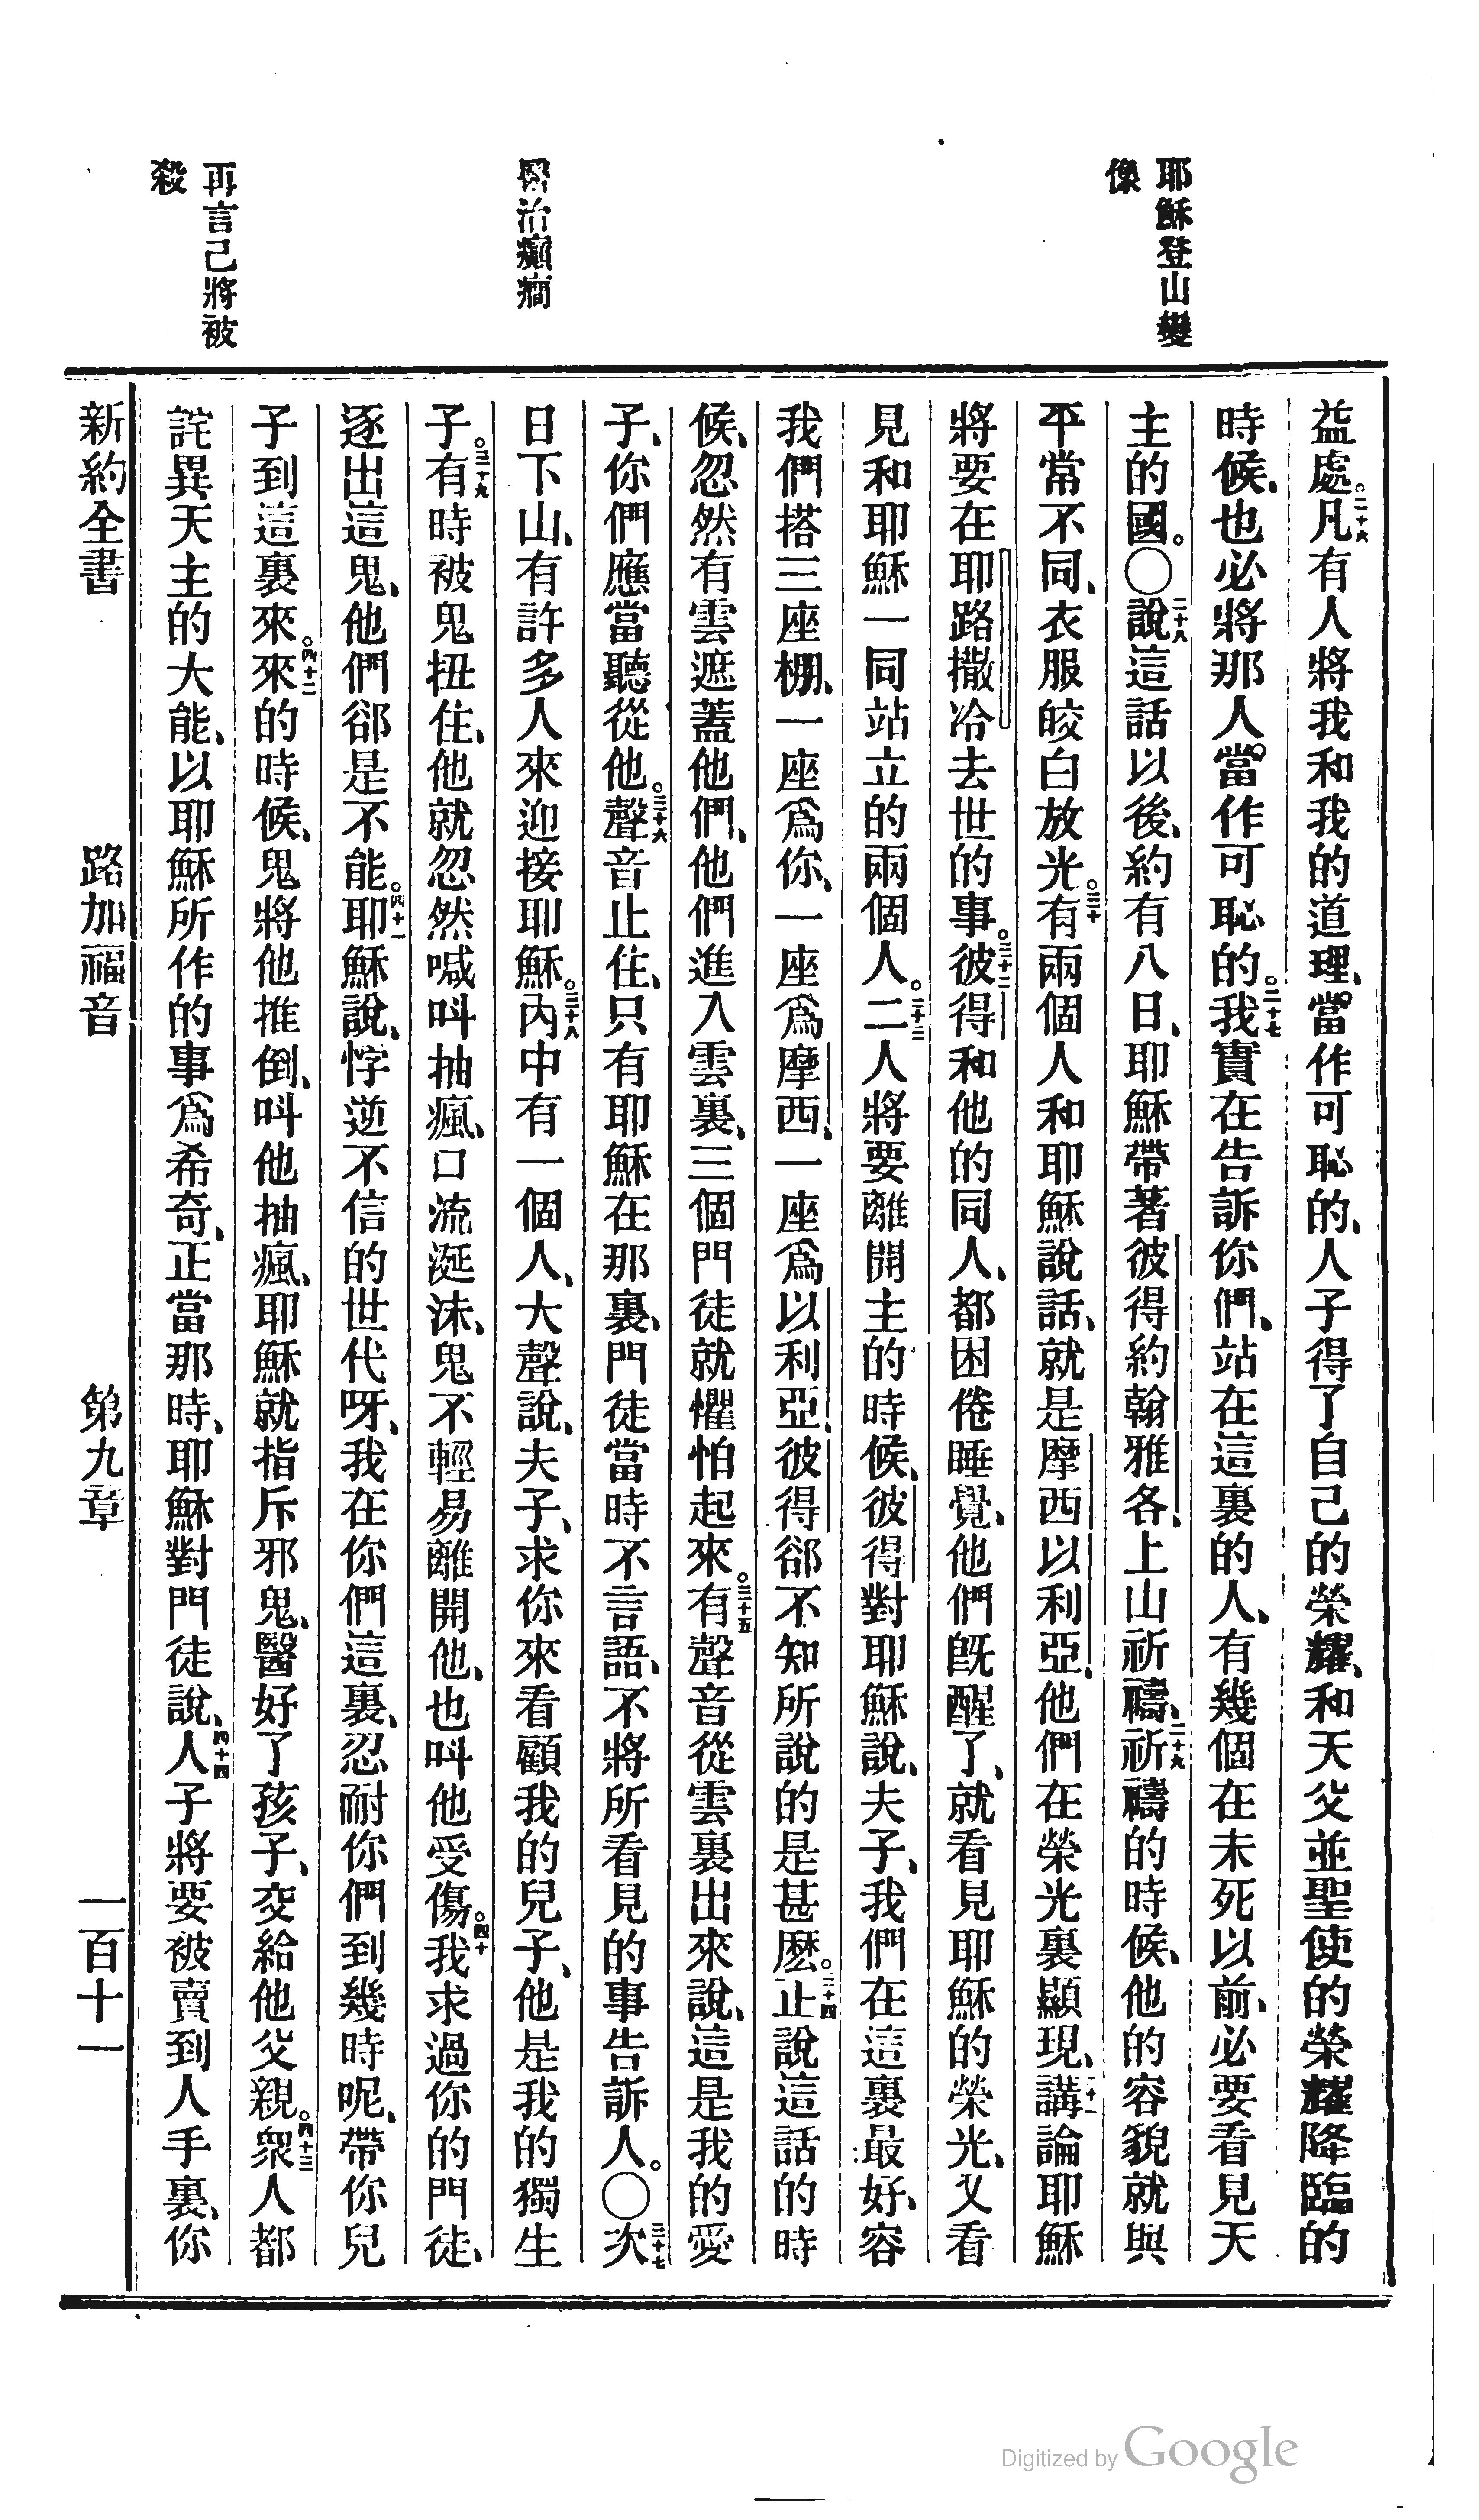 耶穌登山變
像
醫治癲癇
再言己將被
殺
益處。二十六凡有人將我和我的道理、當作可恥的、人子得了自己的榮耀、和天父並聖使的榮耀降臨的
時候、也必將那人當作可恥的。二十七我實在告訴你們、站在這裏的人、有幾個在未死以前、必要看見天
主的國。〇二十八說這話以後、約有八日、耶穌帶著彼得約翰雅各、上山祈禱、二十九祈禱的時候、他的容貌就與
平常不同、衣服皎白放光。三十有兩個人和耶穌說話、就是摩西以利亞、他們在榮光裏顯現、三十一講論耶穌
將要在耶路撒冷去世的事。三十二彼得和他的同人、都困倦睡覺、他們旣醒了、就看見耶穌的榮光、又看
見和耶穌一同站立的兩個人。三十三二人將要離開主的時候、彼得對耶穌說、夫子、我們在這裏最好、容
我們搭三座棚、一座爲你、一座爲摩西、一座爲以利亞、彼得卻不知所說的是甚麽。三十四正說這話的時
候、忽然有雲遮蓋他們、他們進入雲裏、三個門徒就懼怕起來。三十五有聲音從雲裏出來說、這是我的愛
子、你們應當聽從他。三十六聲音止住、只有耶穌在那裏、門徒當時不言語、不將所看見的事告訴人。〇三十七次
日下山、有許多人來迎接耶穌。三十八內中有一個人、大聲說、夫子、求你來看顧我的兒子、他是我的獨生
子。三十九有時被鬼扭住、他就忽然喊叫抽瘋、口流涎沫、鬼不輕易離開他、也叫他受傷。四十我求過你的門徒、
逐出這鬼、他們卻是不能。四十一耶穌說、悖逆不信的世代呀、我在你們這裏、忍耐你們到幾時呢、帶你兒
子到這裏來。四十二來的時候、鬼將他推倒、叫他抽瘋、耶穌就指斥邪鬼、醫好了孩子、交給他父親。四十三衆人都
詫異天主的大能、以耶穌所作的事爲希奇、正當那時、耶穌對門徒說、四十四人子將要被賣到人手裏、你
新約全書 路加福音 第九章 一百十一
Digitized by Google